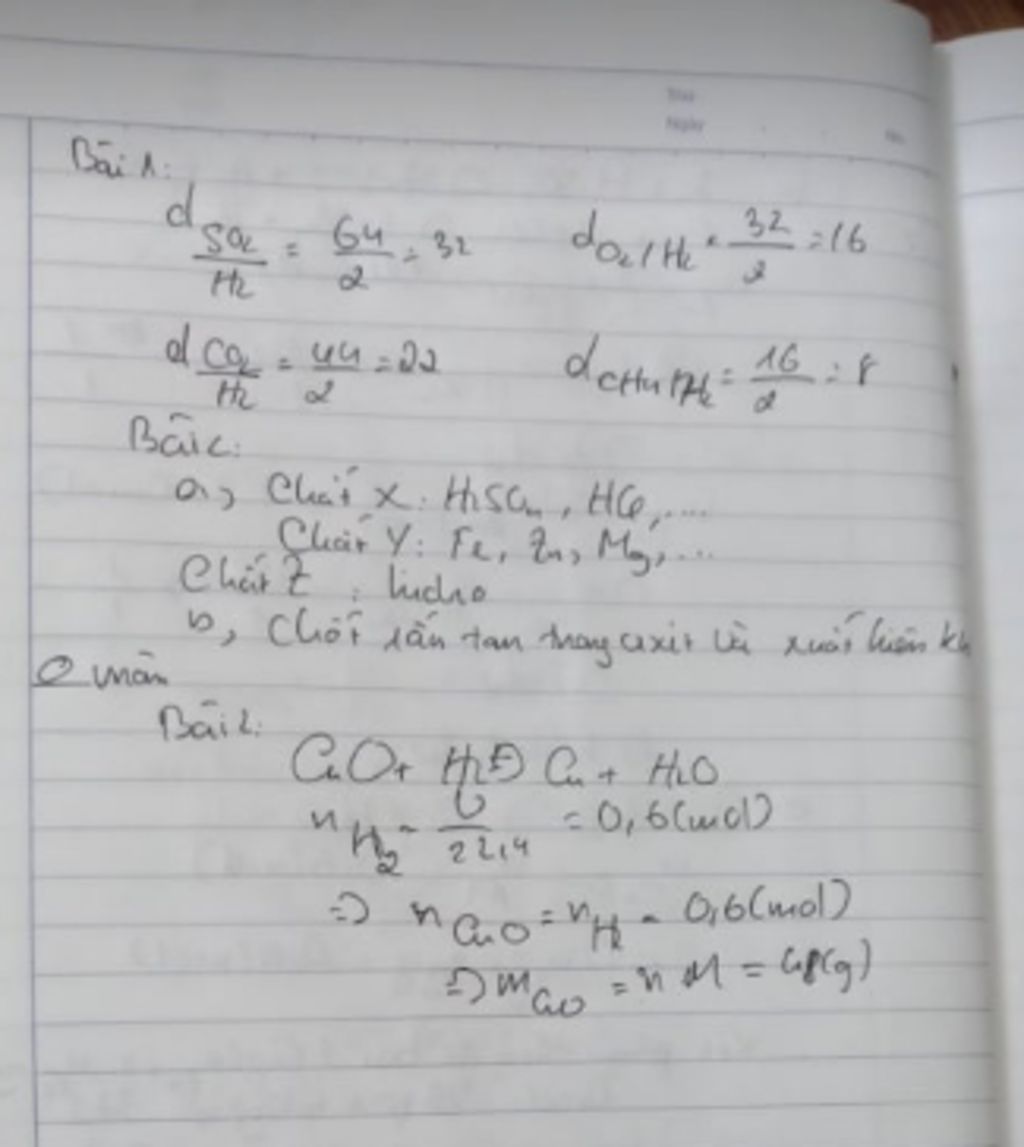 Bài 1:
d SO2/H2 = 64/2 = 32    dO2/H2 = 32/2 = 16
d CO2/H2 = 44/2 = 22    dCH4/H2 = 16/2 = 8
Bài 2:
a, Chất X: H2SO4, HCl,....
Chất Y: Fe, Zn, Mg,...
Chất Z: hidro
b, Chất rắn tan trong axit và xuất hiện kh
màu
Bài 2:
CuO + H2 → Cu + H2O
nH2 = V/22,4 = 0,6(mol)
=> nCuO = nH2 = 0,6(mol)
=> mCuO = n M = 48(g)